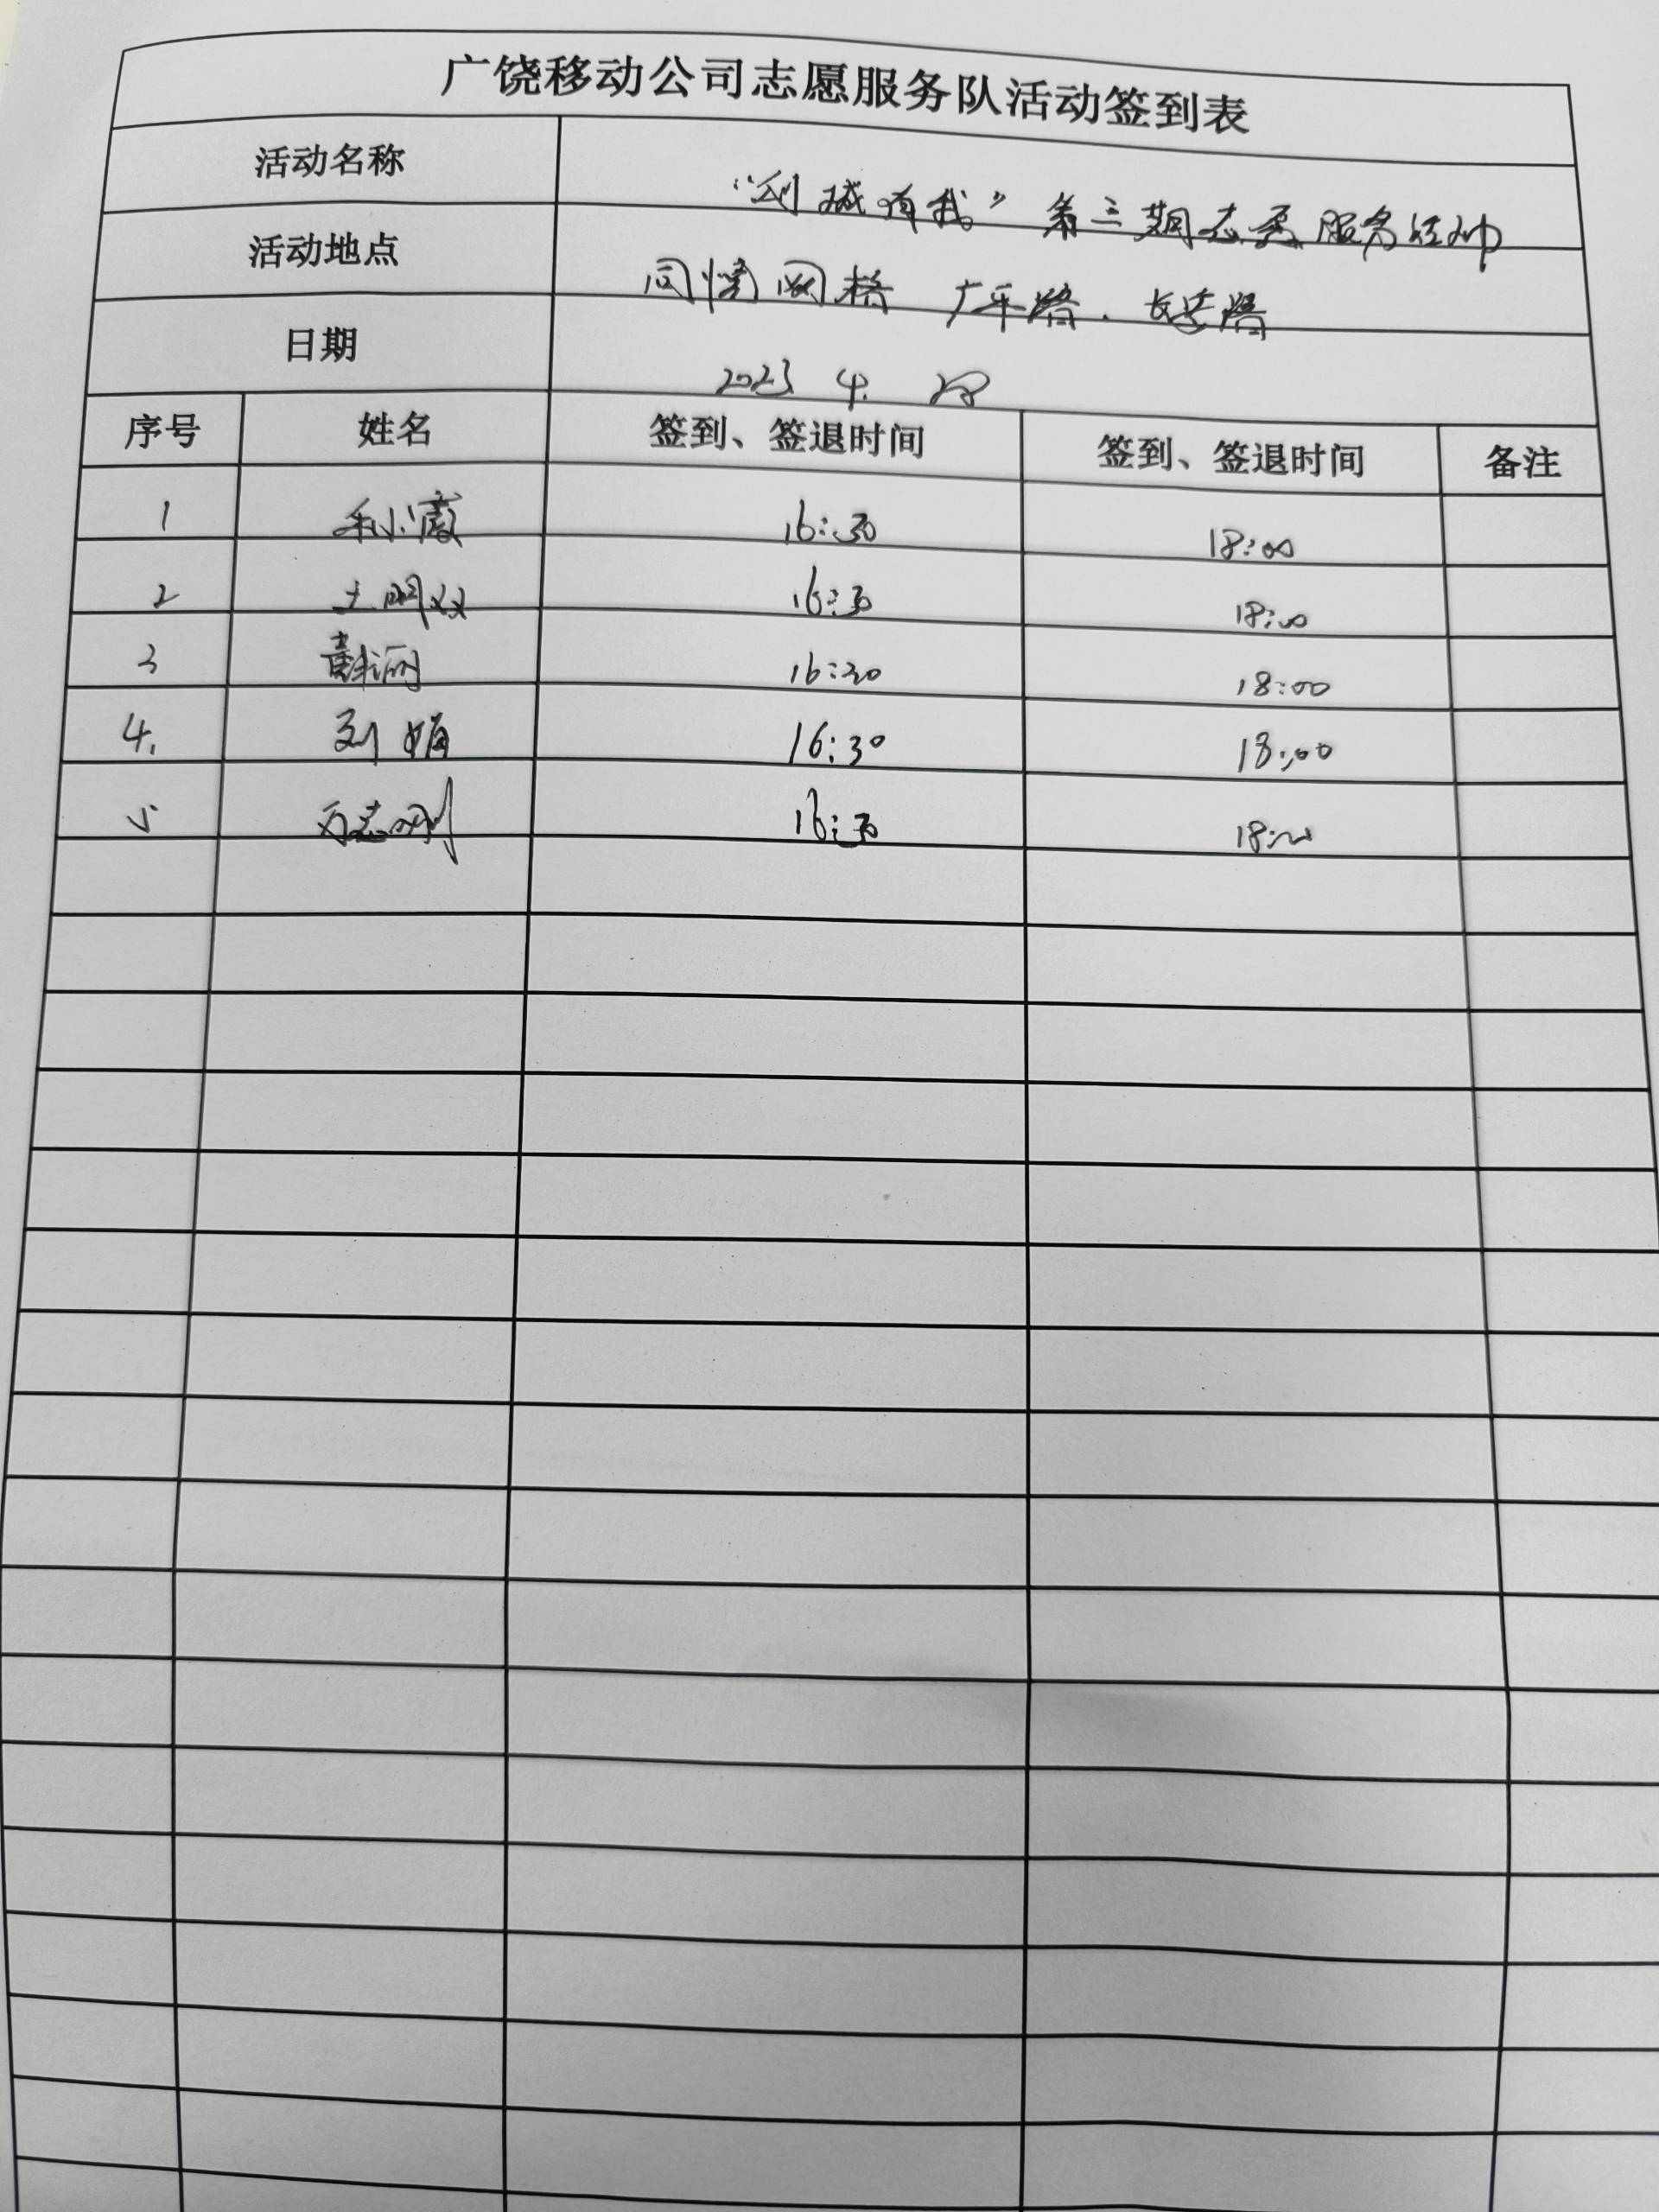 广饶移动公司志愿服务队活动签到表
活动名称 “创城有我”第三期志愿服务活动
活动地点 同情网格 广平路、长安路
日期 2023 4. 28
序号 姓名 签到、签退时间 签到、签退时间 备注
1 16:30 18:00
2 16:30 18:00
3 16:30 18:00
4. 刘娟 16:30 18:00
5 16:30 18:00